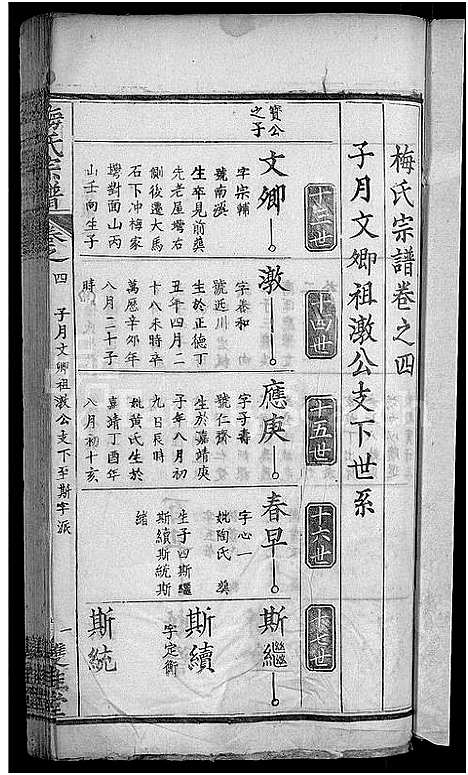 梅氏宗譜卷之四
子月文卿祖激公支下世系
十三世
十四世
十五世
十六世
十七世
寶公
之子
文卿
字宗輔
號南溪
生卒見前奠
先老屋塆右
側後遷大馬
石下冲樟家
塆對面山丙
山壬向生子
激
字泰和
號近川
生於正德丁
丑年四月二
十八未時卒
萬曆辛卯年
八月二十子
時
應庚
字子壽
號仁齋
生於嘉靖庚
子年八月初
九日辰時
妣黃氏生於
嘉靖丁酉年
八月初十亥
春早
字心一
妣陶氏 奠
生子四斯繼
斯續斯統斯
緒
斯繼
斯續
字定衡
斯統
梅氏宗譜
卷之四
子月文卿祖激公支下至斯字派
一
堂